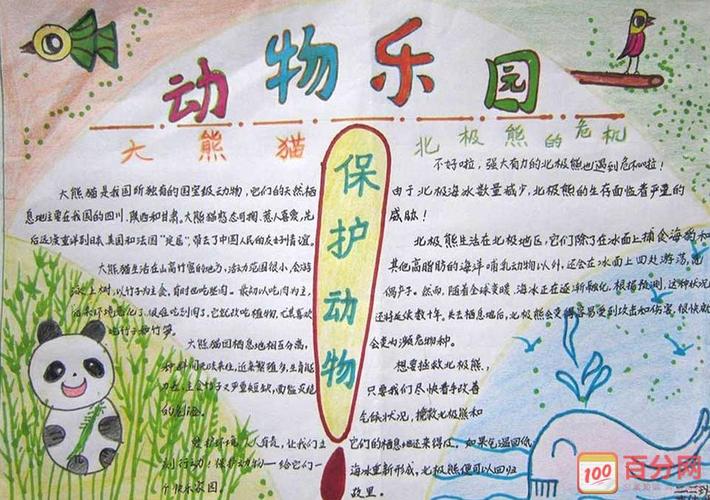 动物乐园
大熊猫
大熊猫是我国所独有的国宝级动物,它们的天然栖
息地主要在我国的四川、陕西和甘肃。大熊猫憨态可掬,惹人喜爱,先
后远渡重洋到日本、美国和法国“定居”,带去了中国人民的友好情谊。
大熊猫生活在山高竹密的地方,活动范围很小,会游
泳、上树,以竹子为主食,有时也吃
吃竹子和竹笋。
大熊猫因栖息地相互分离,
爱护环境,人人有责,让我们立
刻行动!保护动物——给它们一
个快乐家园。
保护动物
北极熊的危机
不好啦,强大有力的北极熊也遇到危机啦!
由于北极海冰数量减少,北极熊的生存面临着严重的
威胁!
北极熊生活在北极地区,它们除了在冰面上捕食海豹和
其他高脂肪的海洋哺乳动物以外,还会在冰面上四处游荡,
偶产子。然而,随着全球变暖,海冰正在逐渐融化,根据预测,这种状况
还将延续数十年。失去栖息地后,北极熊会变得容易受到攻击和伤害,很快就
会变为濒危物种。
想要拯救北极熊,
只要我们尽快着手改善
气体状况,挽救北极熊和
它们的栖息地还来得及。如果气温回低,
海冰重新形成,北极熊便可以回归
故里。
100 百分网